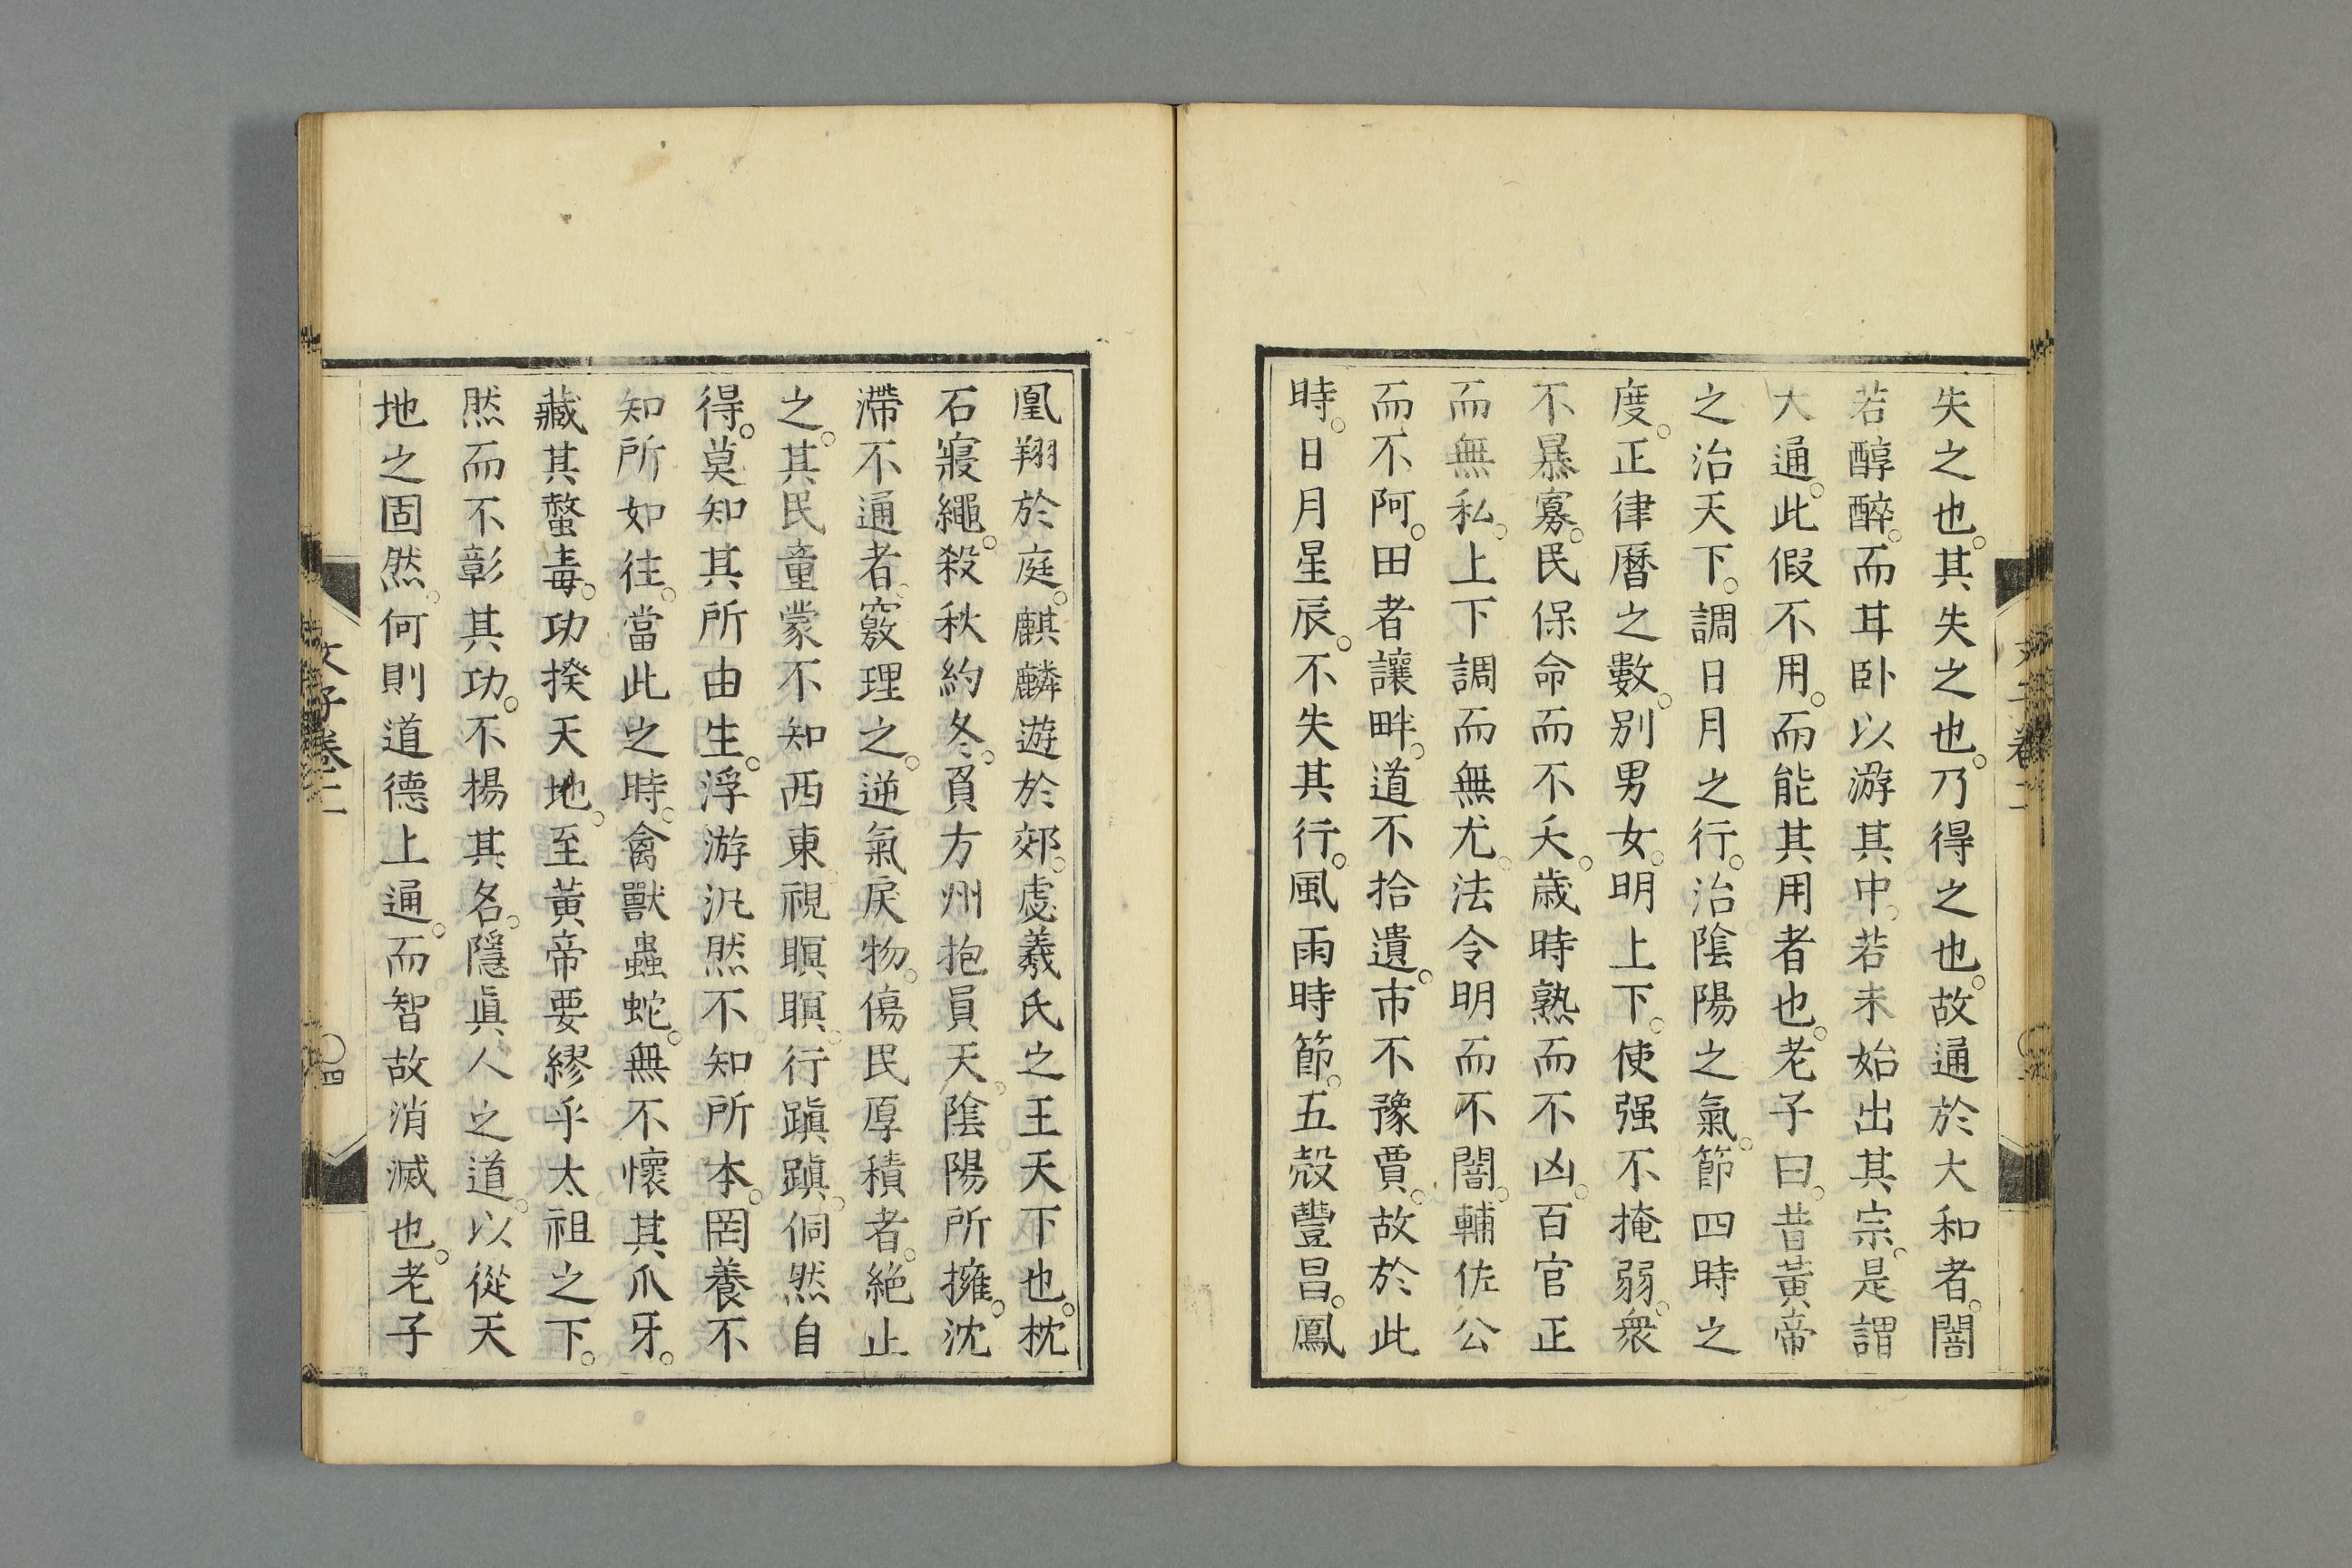 失之也。其失之也。乃得之也。故通於大和者。闇
若醇醉。而耳卧以游其中。若未始出其宗。是謂
大通。此假不用。而能其用者也。老子曰。昔黃帝
之治天下。調日月之行。治陰陽之氣。節四時之
度。正律曆之數。別男女。明上下。使强不掩弱。衆
不暴寡。民保命而不夭。歲時熟而不凶。百官正
而無私。上下調而無尤。法令明而不闇。輔佐公
而不阿。田者讓畔。道不拾遺。市不豫賈。故於此
時。日月星辰。不失其行。風雨時節。五殻豐昌。鳳
凰翔於庭。麒麟遊於郊。虙羲氏之王天下也。枕
石寢繩。殺秋約冬。負方州抱員天。陰陽所擁。沈
滯不通者。竅理之。逆氣戾物。傷民厚積者。絶止
之。其民童蒙不知西東。視瞑瞑。行蹎蹎。侗然自
得。莫知其所由生。浮游汎然不知所本。罔養不
知所如往。當此之時。禽獸蟲蛇。無不懷其爪牙。
藏其螫毒。功揆天地。至黃帝要繆乎太祖之下。
然而不彰其功。不揚其名。隱眞人之道。以從天
地之固然。何則道德上通。而智故消滅也。老子
文子卷二
〇四